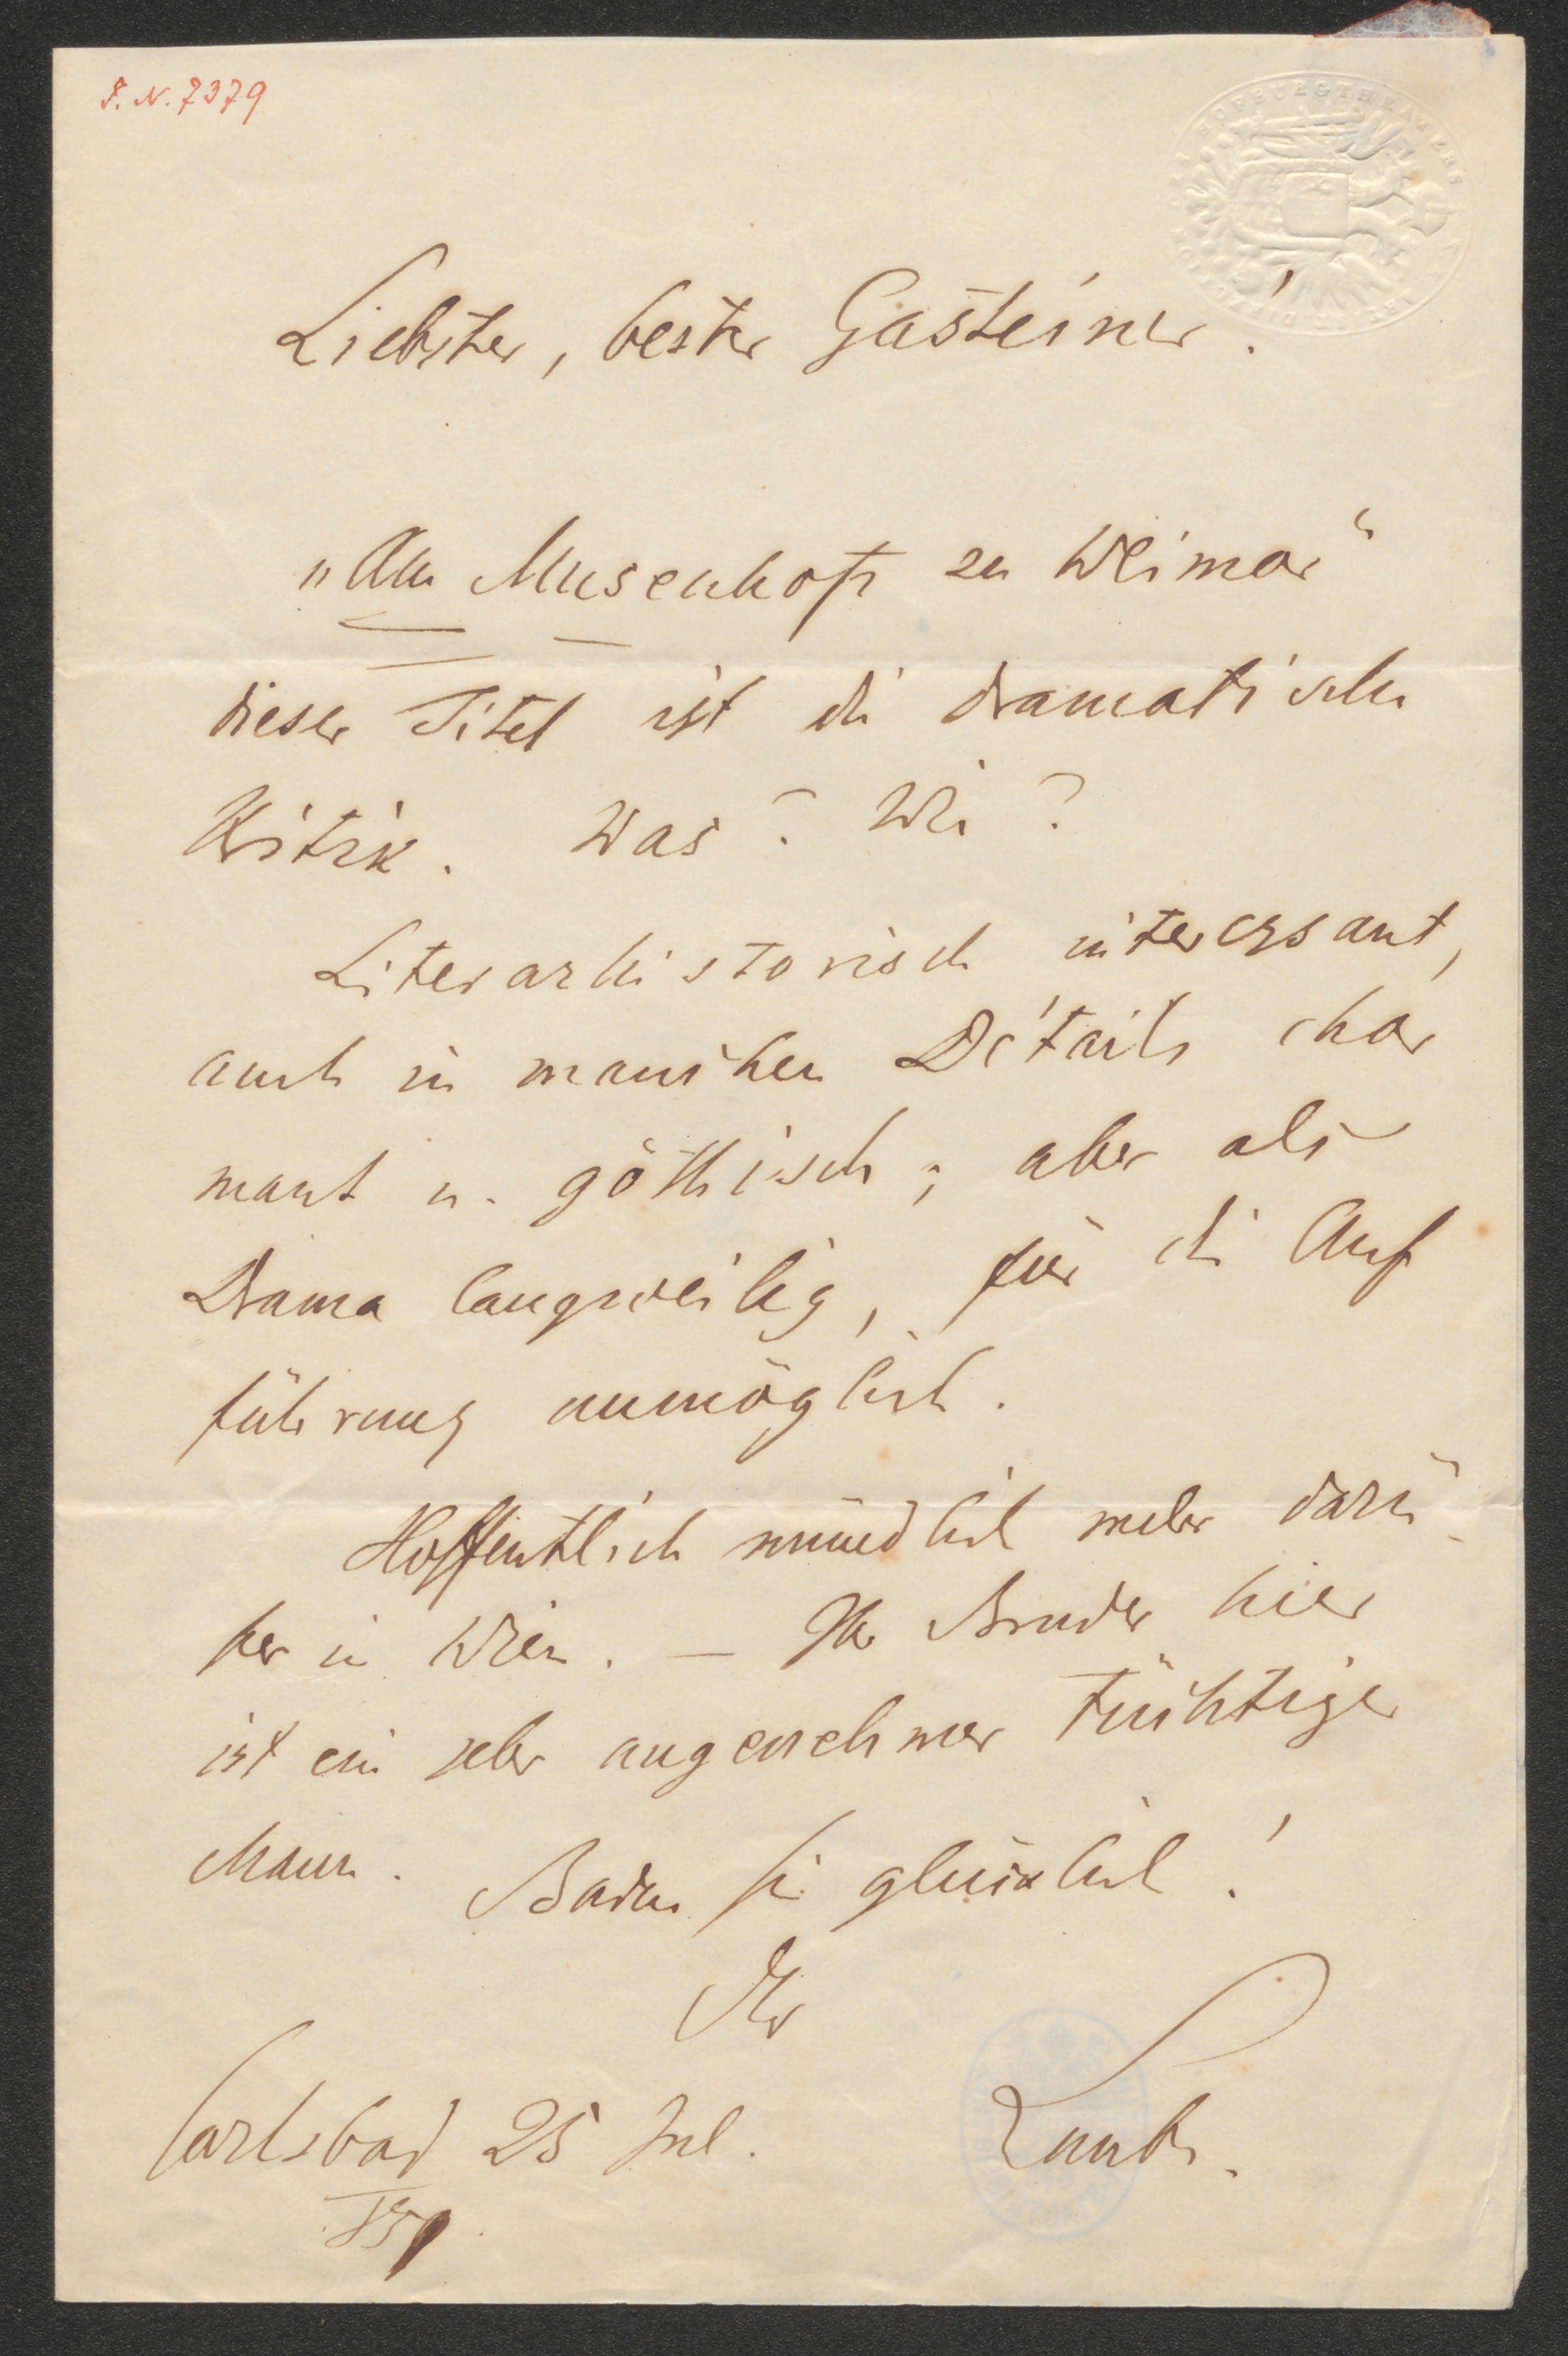 J. N. 7379
Liebster, bester Gasteiner!
„Am Musenhofe zu Weimar“
dieser Titel ist die dramatische
Kritik. Was? Wie?
Literarhistorisch interessant,
auch in manchen Détails char
mant u. göthisch; aber als
Drama langweilig, für die Auf
führung unmöglich.
Hoffentlich mündlich mehr darü-
ber in Wien. — Ihr Bruder hier
ist ein sehr angenehmer tüchtiger
Mann. Baden Sie glücklich!
Ihr
Laube.
Carlsbad 25 Jul.